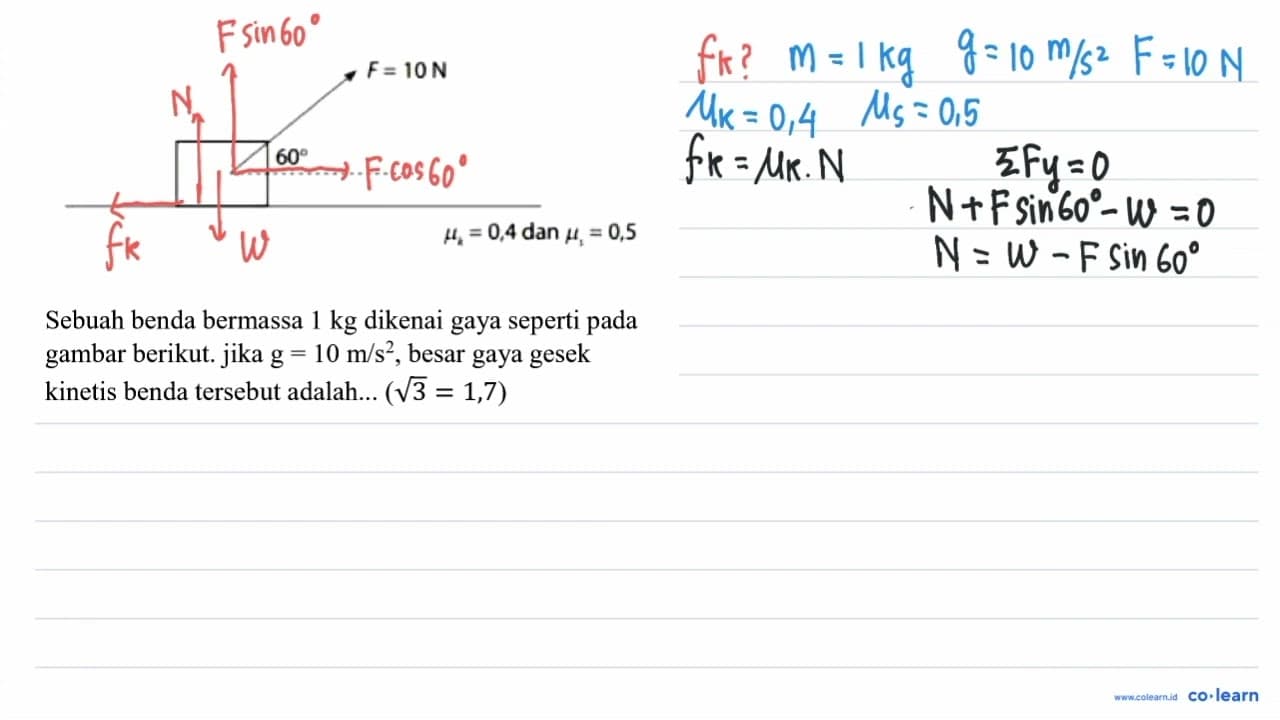 F sin 60°
F = 10 N
N
60°
F cos 60°
fk
W
μk = 0,4 dan μs = 0,5
Sebuah benda bermassa 1 kg dikenai gaya seperti pada
gambar berikut. jika g = 10 m/s², besar gaya gesek
kinetis benda tersebut adalah... (√3 = 1,7)
fk? m = 1 kg g = 10 m/s² F = 10 N
μk = 0,4 μs = 0,5
fk = μk. N ΣFy = 0
N + F sin 60° - W = 0
N = W - F sin 60°
www.colearn.id co·learn